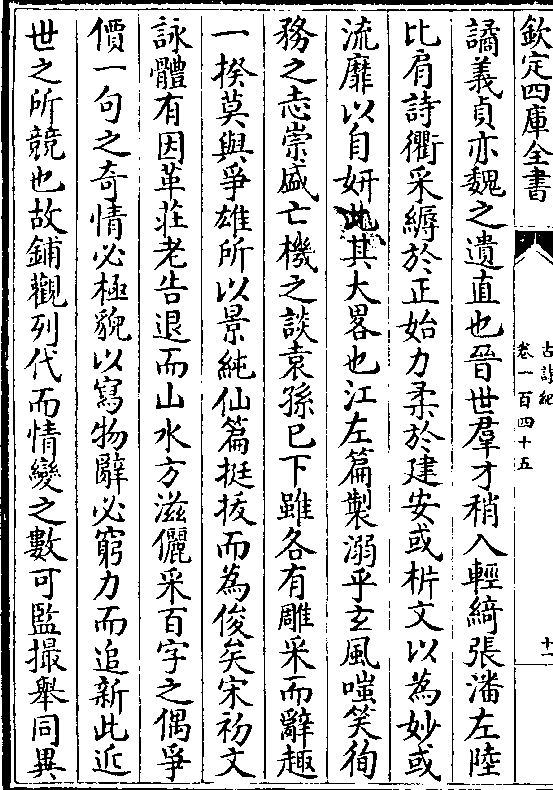 欽定四庫全書
古詩紀
卷一百四十五
十一
譎義貞亦魏之遺直也晉世羣才稍入輕綺張潘左陸
比肩詩衢采縟於正始力柔於建安或枿文以為妙或
流靡以自妍此其大畧也江左篇製溺乎玄風嗤笑徇
務之志崇盛亡機之談袁孫已下雖各有雕采而辭趣
一揆莫與爭雄所以景純仙篇挺拔而為俊矣宋初文
詠體有因革莊老告退而山水方滋儷采百字之偶爭
價一句之奇情必極貌以寫物辭必窮力而追新此近
世之所競也故鋪觀列代而情變之數可監撮舉同異